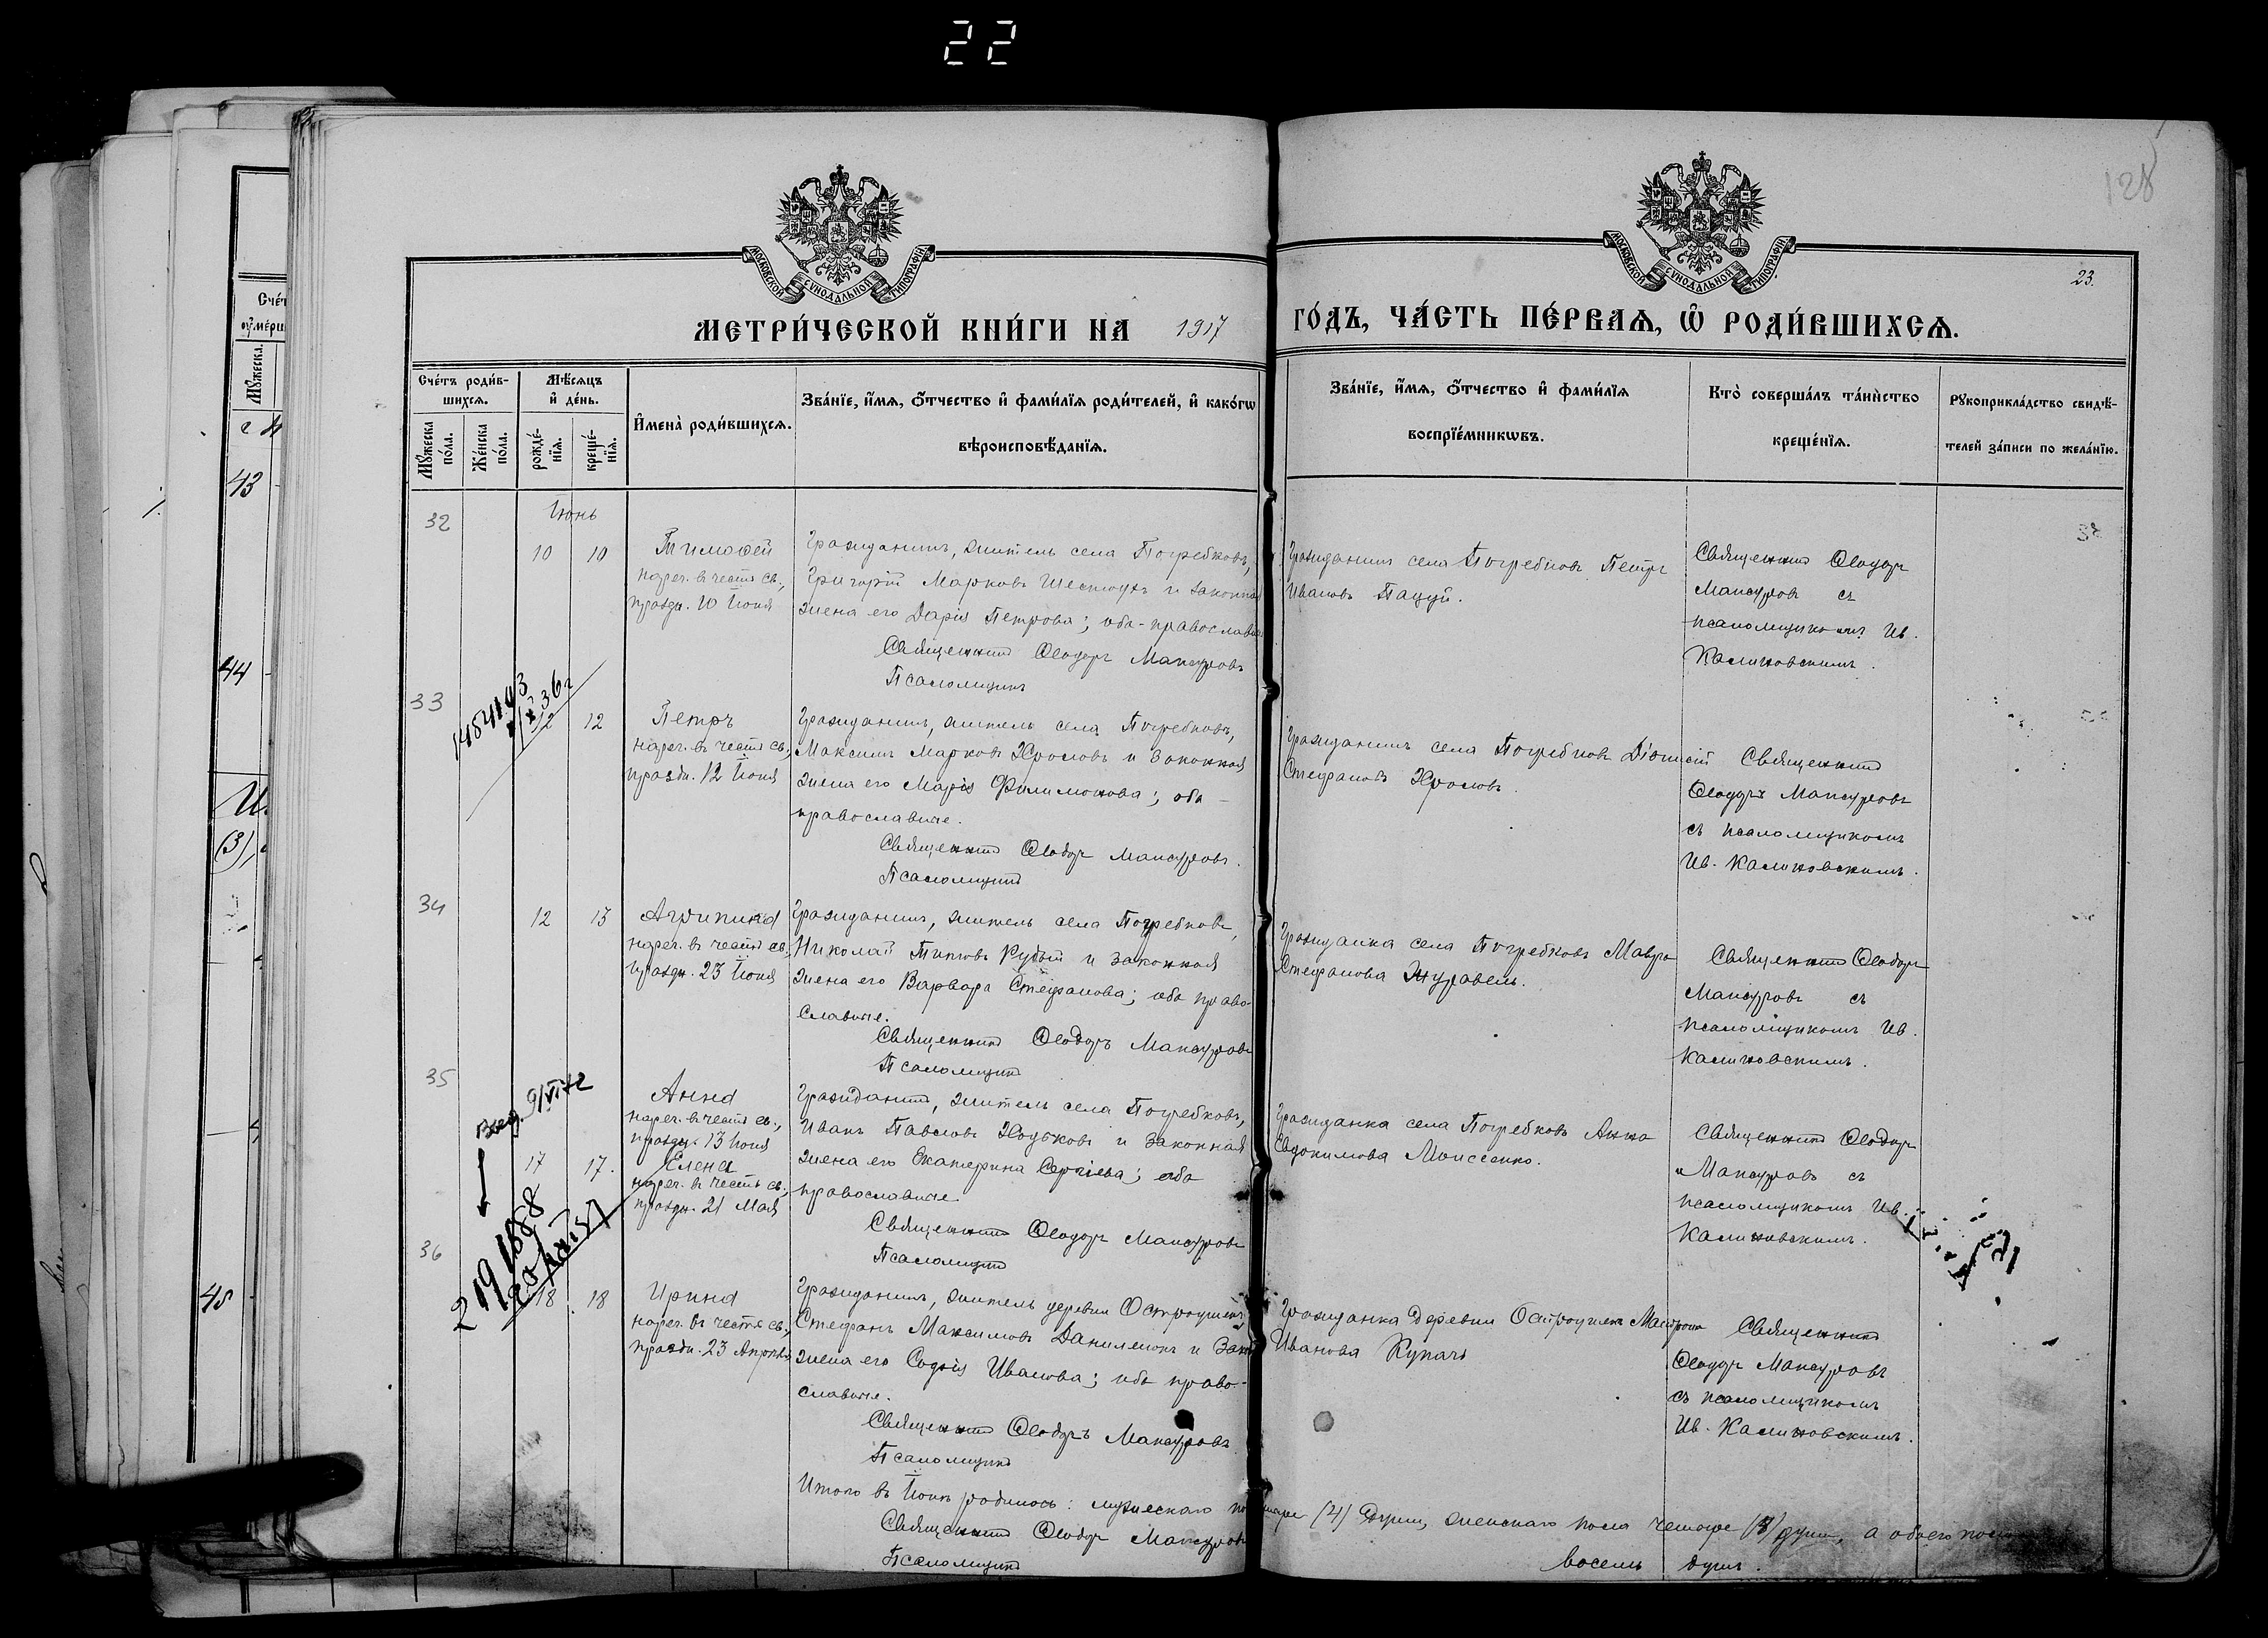 22
128
МОСКОВСКОЙ СѴНОДАЛЬНОЙ ТИПОГРАФІИ
МОСКОВСКОЙ СѴНОДАЛЬНОЙ ТИПОГРАФІИ
23.
МЕТРИ́ЧЕСКОЙ КНИ́ГИ НА 1917 ГО́ДЪ, ЧА́СТЬ ПЕ́РВАѦ, Ѡ РОДИ́ВШИХСѦ.
Сче́тъ роди́в-
шихсѧ.
Мѣ́сѧцъ
и҆ де́нь.
И҆мена̀ роди́вшихсѧ.
Зва́нїе, и҆́мѧ, ѻ҆́тчество и҆ фами́лїѧ роди́телей, и҆ како́гѡ
вѣроисповѣ́данїѧ.
Зва́нїе, и҆́мѧ, ѻ҆́тчество и҆ фами́лїѧ
воспрїе́мникѡвъ.
Кто̀ соверша́лъ та́инство
креще́нїѧ.
Рꙋкоприкла́дство свидѣ́-
телей за́писи по жела́нїю.
Мꙋ́жеска
по́ла.
Же́нска
по́ла.
рожде́-
нїѧ.
креще́-
нїѧ.
Іюнь
32
10 10
Тимофей
нареч. в честь св.,
праздн. 10 Іюня
Гражданинъ, житель села Погребковъ,
Григорій Марковъ Шестюкъ и законная
жена его Дарія Петрова; оба-православные
Священникъ Ѳеодоръ Мансуровъ
Псаломщикъ
Гражданинъ села Погребковъ Петръ
Ивановъ Пацуй.
Священникъ Ѳеодоръ
Мансуровъ съ
псаломщикомъ Ив.
Калиновскимъ.
33
12 12
Петръ
нареч. в честь св.,
праздн. 12 Іюня
Гражданинъ, житель села Погребковъ,
Максимъ Марковъ Хроловъ и законная
жена его Марія Филимонова; оба -
православные.
Священникъ Ѳеодоръ Мансуровъ.
Псаломщикъ
Гражданинъ села Погребковъ Діонисій
Стефановъ Хроловъ.
Священникъ
Ѳеодоръ Мансуровъ
съ псаломщикомъ
Ив. Калиновскимъ.
34
12 13
Агрипина
нареч. в честь св.,
праздн. 23 Іюня
Гражданинъ, житель села Погребковъ,
Николай Титовъ Рубый и законная
жена его Варвара Стефанова; оба право-
славные.
Священникъ Ѳеодоръ Мансуровъ
Псаломщикъ
Гражданка села Погребковъ Мавра
Стефанова Журавель.
Священникъ Ѳеодоръ
Мансуровъ съ
псаломщикомъ Ив.
Калиновскимъ.
35
9/VI 42
17 17.
Анна
нареч. в честь св.,
праздн. 13 Іюня
Елена
нареч. в честь св.,
праздн. 21 Мая
Гражданинъ, житель села Погребковъ,
Иванъ Павловъ Ходьковъ и законная
жена его Екатерина Сергіева; оба
православные
Священникъ Ѳеодоръ Мансуровъ
Псаломщикъ
Гражданка села Погребковъ Анна
Евдокимова Моисеенко.
Священникъ Ѳеодоръ
Мансуровъ съ
псаломщикомъ Ив.
Калиновскимъ.
36
18 18
Ирина
нареч. в честь св.,
праздн. 23 Апрѣля
Гражданинъ, житель деревни Остроушекъ,
Стефанъ Максимовъ Даниленокъ и зак.
жена его Софія Иванова; оба право-
славные.
Священникъ Ѳеодоръ Мансуровъ
Псаломщикъ
Гражданка деревни Остроушекъ Матрона
Иванова Купачъ
Священникъ
Ѳеодоръ Мансуровъ
съ псаломщикомъ
Ив. Калиновскимъ.
Итого въ Іюнѣ родилось: мужескаго пола четыре (4) души, женскаго пола четыре (4) души, а обоего пола
восемь душъ.
Священникъ Ѳеодоръ Мансуровъ
Псаломщикъ
43
44
45